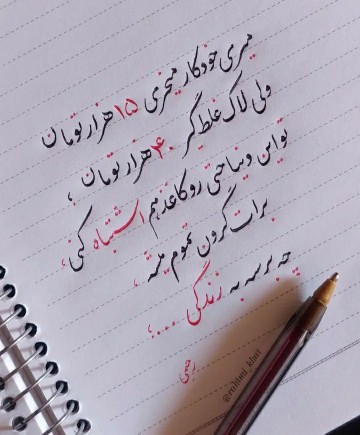 میری خودکار میخری ۱۵ هزار تومان
ولی لاک غلط گیر ۴۰ هزار تومان ؛
تو این دنیا حتی رو کاغذ هم اشتباه کنی ،
برات گرون تموم میشه ،
چه برسه به زندگی ... ؛
رحیمی
@rahimi_khat